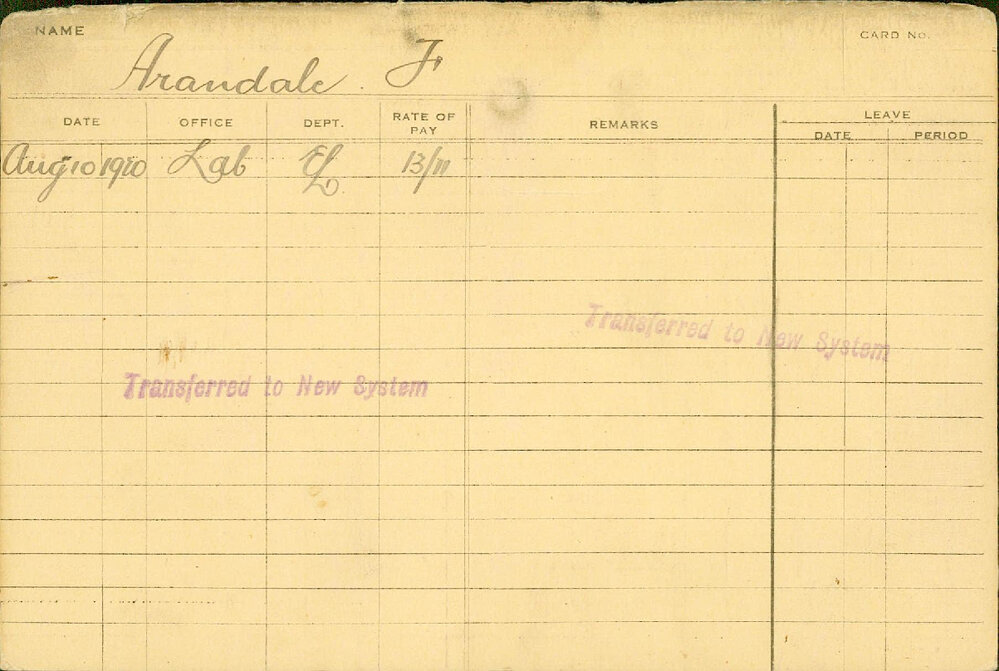 NAME
CARD No.
Arandale F
DATE OFFICE DEPT. RATE OF PAY REMARKS LEAVE
DATE PERIOD
Aug 10 1920 Lab EL 13/11
Transferred to New System
Transferred to New System